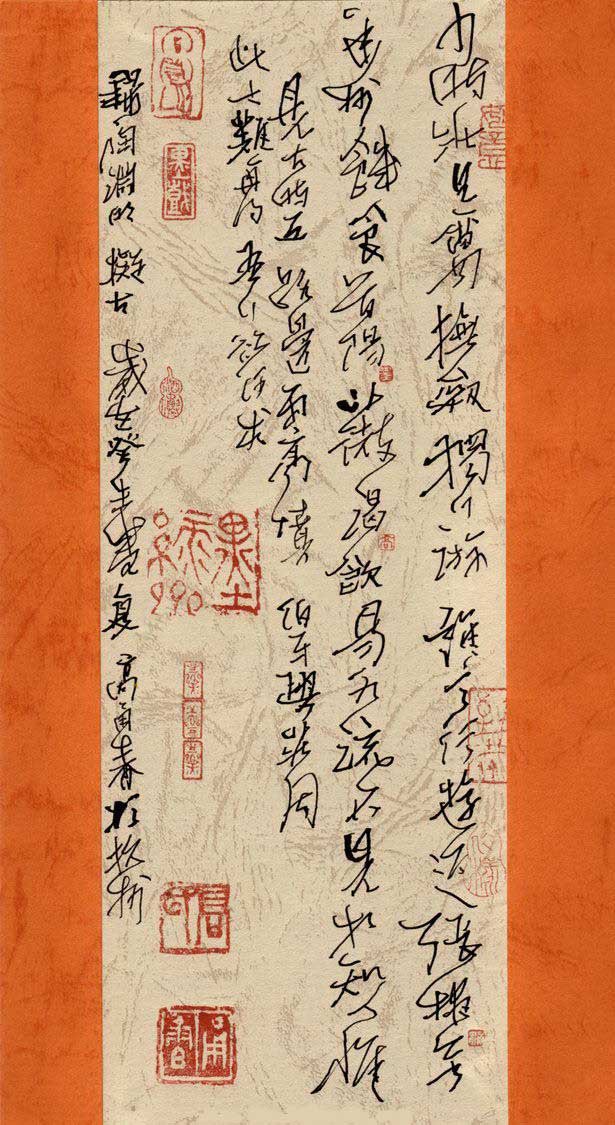 少時壯且厲撫劍獨行游誰言行遊近張掖至
幽州饑食首陽薇渴飲易水流不見相知人惟
見古時丘路邊兩高墳伯牙與莊周
此士難再得吾行欲何求
陶淵明擬古歲在癸未夏高甬春於杭州